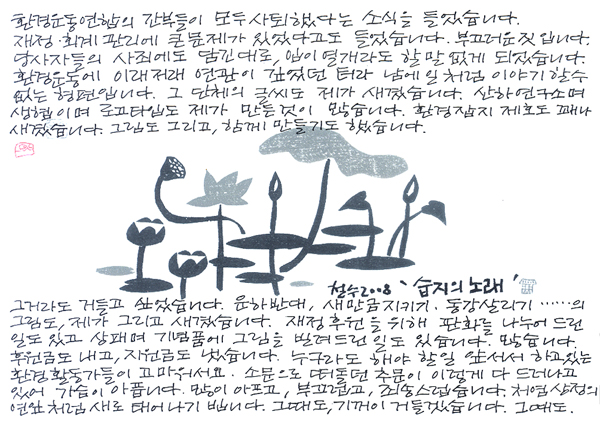 환경운동연합의 간부들이 모두 사퇴했다는 소식을 들었습니다.
재정·회계 관리에 큰 문제가 있었다고도 들었습니다. 부끄러운 짓입니다.
당사자들의 사죄에도 담긴대로, 입이 열개라도 할 말 없게 되었습니다.
환경운동에 이래저래 연관이 깊었던 터라 남에 일처럼 이야기 할 수
없는 형편입니다. 그 단체의 글씨도 제가 새겼습니다. 산하연구소며
생협이며 로고타입도 제가 만든 것이 많습니다. 환경잡지 제호도 꽤나
새겼습니다. 그림도 그리고, 함께 만들기도 했습니다.
철수 2008 '습지의 노래'
그거라도 거들고 싶었습니다. 운하반대, 새만금지키기, 동강살리기 ……의
그림도, 제가 그리고 새겼습니다. 재정후원을 위해 판화를 나누어 드린
일도 있고 상패며 기념품에 그림을 빌려드린 일도 있습니다. 많습니다.
후원금도 내고, 지원금도 냈습니다. 누구라도 해야 할 일 앞서서 하고있는
환경 활동가들이 고마워서요. 소문으로 떠돌던 추문이 이렇게 다 드러나고
있어 가슴이 아픕니다. 많이 아프고, 부끄럽고, 죄송스럽습니다. 처염상정의
연꽃처럼 새로 태어나기 빕니다. 그때도, 기꺼이 거들겠습니다. 그때도.